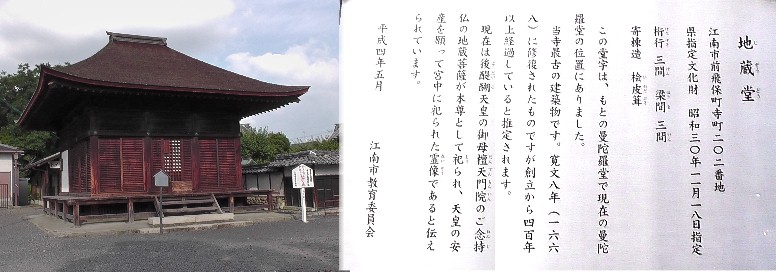 地蔵堂
じぞうどう
江南市前飛保町寺町二〇二番地
県指定文化財 昭和三〇年一一月一八日指定
桁行 三間 梁間 三間
寄棟造 桧皮葺
この堂宇は、もとの曼陀羅堂で現在の曼陀
羅堂の位置にありました。
当寺最古の建築物です。寛文八年（一六六
八）に修復されたものですが創立から四百年
以上経過していると推定されます。
現在は後醍醐天皇の御母檀天門院のご念持
仏の地蔵菩薩が本尊として祀られ、天皇の安
産を願って宮中に祀られた霊像であると伝え
られています。
平成四年五月
江南市教育委員会